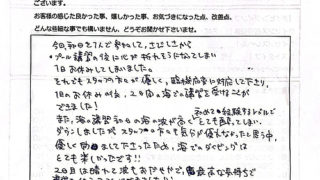 ございます。
お客様の感じた良かった事、嬉しかった事、お気づきになった点、改善点、
どんな些細な事でも構いません、どうぞお聞かせ下さいませ。
今回初めて1人で参加して、さびしさから
プール講習の後に心が折れそうになってしまい
1日お休みしてしまいました。
それでもスタッフの方々が優しく、臨機応変に対応して下さり、
1日のお休み後、2日間の海での講習を受けることが
できました!
初めて経験するレベルで
また、海の講習 の海の波が高く とても酔ってしまい、
ダウンしましたが スタッフの方も気分が優れなかったと思う中、
優しく して下さったため、海でのダイビングは
とても楽しかったです!!
2日目は晴れて波もおだやかで、 な気持ちで